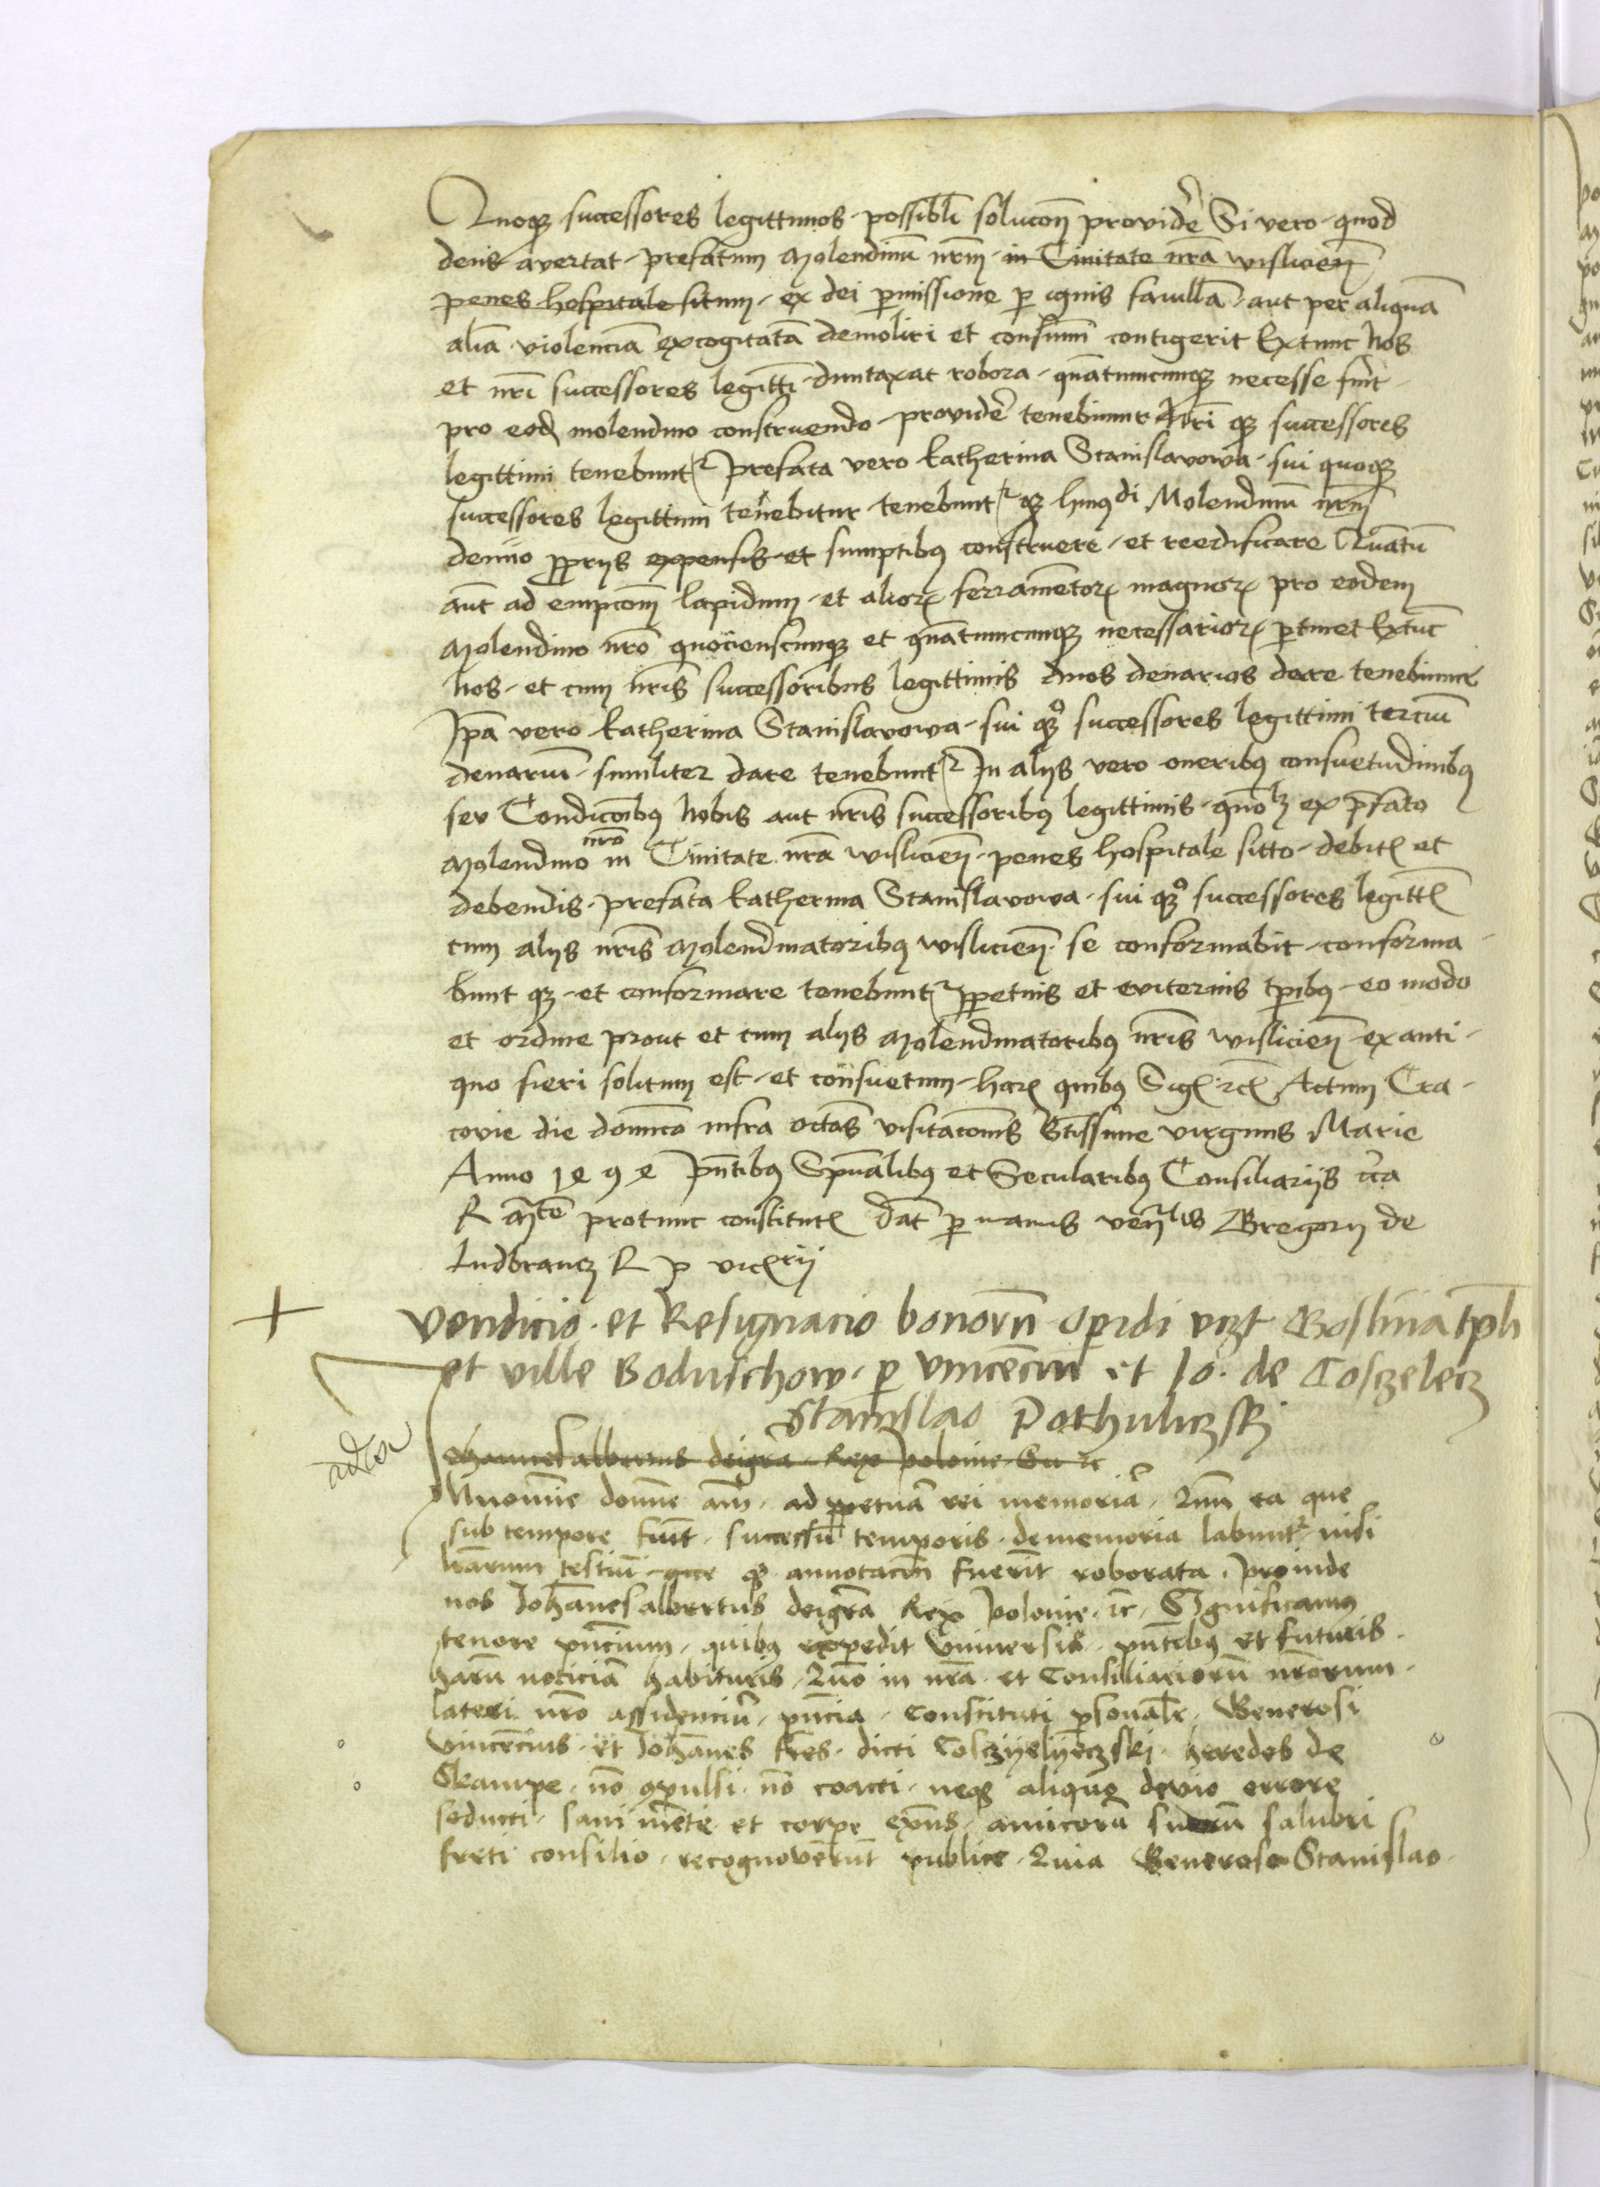 Quoqz successores legittimos possibli solucoñ providẽ Si vero quod
deus avertat prefatum Molendinũ nrm̃ in Civitate nrã Wislicieñ
penes hospitale situm ex dei pmissione p ignis favillã aut per aliquã
aliã violenciã excogitatã demoliri et consumi contigerit Extunc Nos
et nrĩ successores legitti duntaxat robora quãtumcumqz necesse fuit
pro eod molendino construendo providẽ tenebimur Nrĩ qz successores
legittimi tenebunt Prefata vero Katherina Stanislavowa sui quoqz
successores legittimi tenebitur tenebunt qz hmõi Molendinũ nrm̃
denuo ppriis expensis et sumptibus construere et reedificare Quãtũ
aũt ad empcom̃ lapidum et alior ferramẽtor magnor pro eodem
Molendino nrõ quocienscumqz et quãtumcumqz necessarior ptinet Extũc
Nos et cum nrĩs successoribus legittimis duos denarios dare tenebimur
Ipã vero Katherina Stanislavowa sui qz successores legittimi terciũ
denariũ similiter dare tenebunt In aliis vero oneribus consuetudinibus
seu Condiccõibus Nobis aut nrĩs successoribus legittimis quõlz ex pfato
Molendino nrõ in Civitate nrã Wislicieñ penes hospitale sitto debit et
debendis prefata Katherina Stanislavowa sui qz successores legitt
cum aliis nrĩs Molendinatoribus Wislicieñ se conformabit conforma
bunt qz et conformare tenebunt ppetuis et eviternis tpibus eo modo
et ordine prout et cum aliis Molendinatoribus nrĩs Wislicieñ ex anti
quo fieri solitum est et consuetum har quibus Sig rc Actum Cra
covie die dominco infra octãs visitacõnis Btissime virginis Marie
Anno 1494 Pntibus Spũalibus et Secularibus Consiliariis
R protunc constitut Dat p manus Gregorii de
Ludbrancz R P vic
Vendicio et Resignacio bonorũ opidi vizt Goslina
et ville Boduschow p Vincenciũ et Jo. de Coszelecz
Stanislao Pothuliczski
Johannes albertus deigrã Rex Polonie
In nomine domini am̃ ad ppetuã rei memoriã Qum ea que
sub tempore fiũt successu temporis de memoria labunt nisi
lrãrum testiũ qz annotacõn fuerĩt roborata Proinde
nos Johanes albertus deigrã Rex Polonie rc Significamus
tenore pñcium quibus expedit Universis pñtibus et futuris
harũ noticiã habituris Quo in nrã et Consiliariorũ nrõrum
lateri nrõ assidenciũ pñcia constituti psonalr Generosi
Vincencius et Johãnes frẽs dicti Cosczyelyeczski heredes de
Skampe nõ cõpulsi nõ coacti neqz aliquo devio errore
seducti sani mẽte et corpe exñs amicorũ suorũ salubri
freti consilio recognoverũt publice Quia Generoso Stanislao